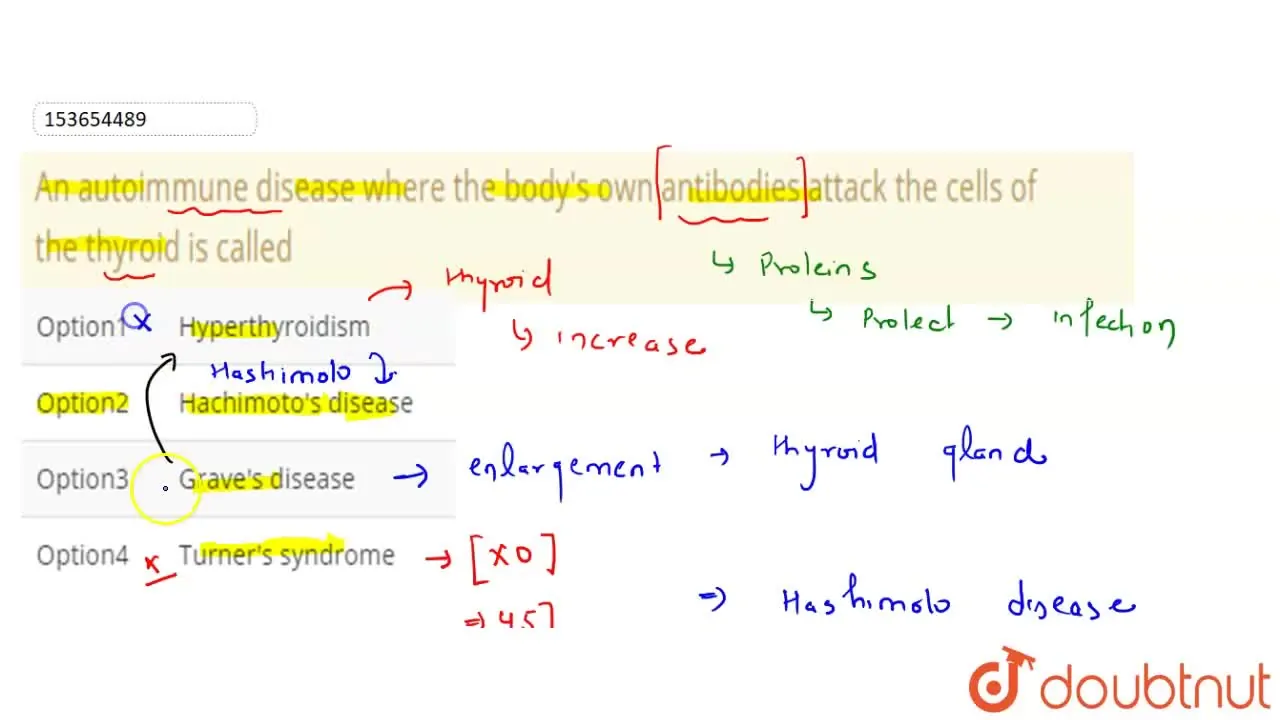 153654489
An autoimmune disease where the body's own [antibodies] attack the cells of
the thyroid is called
↳ Proteins
↳ Protect → infection
→ Thyroid
↳ increase
Option1 x Hyperthyroidism
Hashimoto ↓
Option2 Hachimoto's disease
Option3 Grave's disease → enlargement → Thyroid gland
Option4 x Turner's syndrome → [XO]
⇒ 45]
⇒ Hashimoto disease
doubtnut